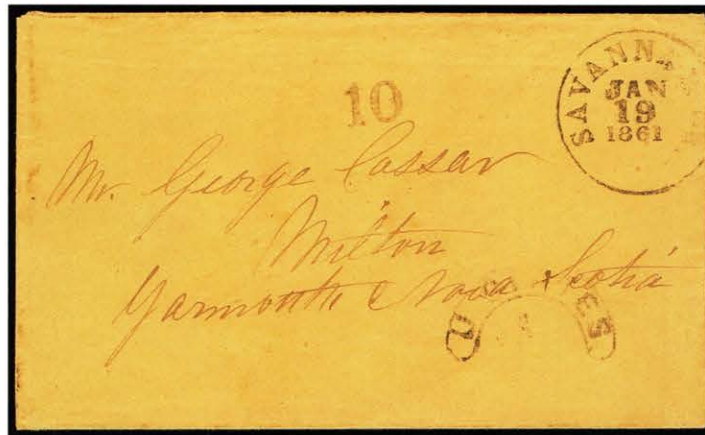 10
SAVANNA
JAN
19
1861
Mr. George Cassar
Milton
Yarmouth Nova Scotia
U S